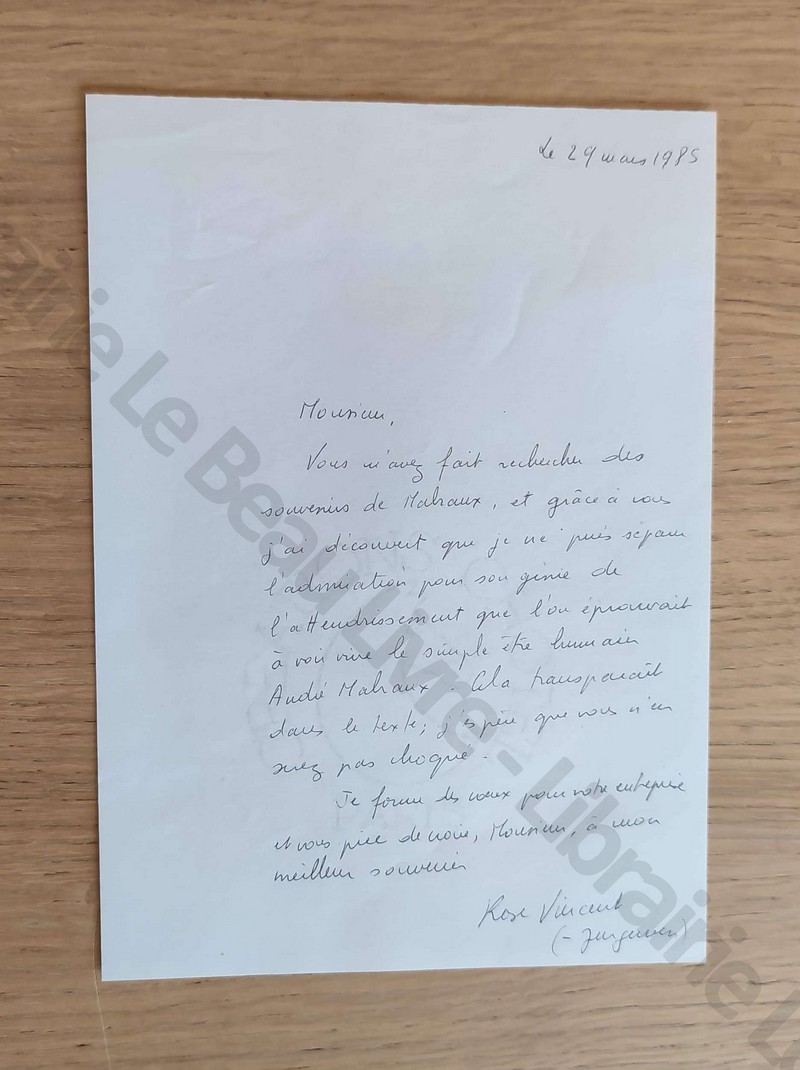 Le 29 mars 1985
Monsieur,
Vous m'avez fait rechercher des
souvenirs de Malraux, et grâce à vous
j'ai découvert que je ne puis séparer
l'admiration pour son génie de
l'attendrissement que l'on éprouvait
à voir vivre le simple être humain
André Malraux. Cela transparaît
dans le texte; j'espère que vous n'en
serez pas choqué.
Je forme des vœux pour votre entreprise
et vous prie de croire, Monsieur, à mon
meilleur souvenir
Rose Vincent
(- Jurgensen)
Librairie Le Beau Livre - Librairie Le